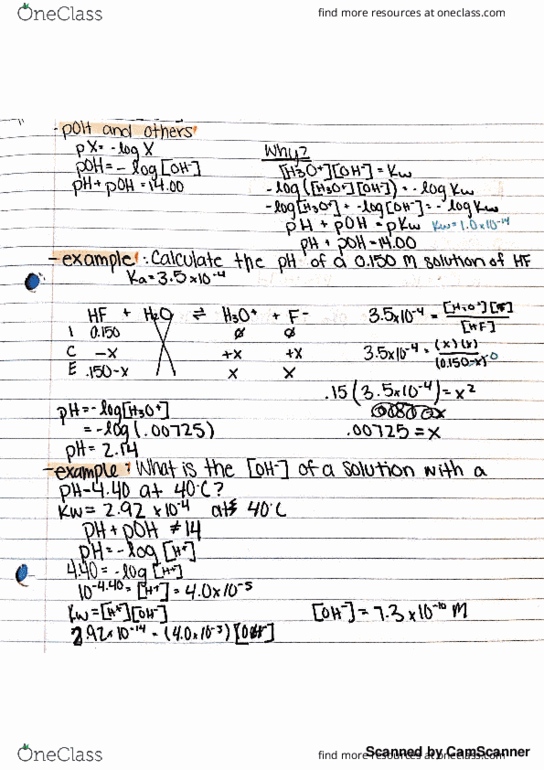 OneClass
find more resources at oneclass.com
- pOH and others
pX = -log X
pOH = - log [OH-]
pH + pOH = 14.00
Why?
[H3O+][OH-] = Kw
-log([H3O+][OH-]) = - log Kw
-log[H3O+] + -log[OH-] = - log Kw
pH + pOH = pKw Kw = 1.0x10^-14
pH + pOH = 14.00
- example: Calculate the pH of a 0.150 M solution of HF
Ka = 3.5x10^-4
HF + H2O ⇌ H3O+ + F-
I 0.150 ø ø
C -x +x +x
E .150-x x x
3.5x10^-4 = [H3O+][F-] / [HF]
3.5x10^-4 = (x)(x) / (0.150-x) 0
.15(3.5x10^-4) = x²
.00725 = x
pH = -log[H3O+]
= -log(.00725)
pH = 2.14
- example: What is the [OH-] of a solution with a
pH=4.40 at 40°C?
Kw = 2.92 x10^-4 at 40°C
pH + pOH ≠ 14
pH = -log [H+]
4.40 = -log [H+]
10^-4.40 = [H+] = 4.0x10^-5
Kw = [H+][OH-]
2.92x10^-14 = (4.0x10^-5)[OH-]
[OH-] = 7.3 x10^-10 M
Scanned by CamScanner
OneClass
find more resources at oneclass.com